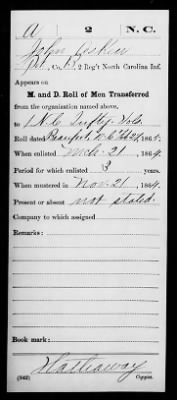 A 2 N.C.
John
Pvt, Co. B, 2 Reg't North Carolina Inf.
Appears on
M. and D. Roll of Men Transferred
from the organization named above,
to 1 N.C. Vols.
Roll dated Beaufort N.C. Feb 27, 1865.
When enlisted Mch. 21, 1864.
Period for which enlisted 3 years.
When mustered in Nov. 21, 1864.
Present or absent not stated.
Company to which assigned
Remarks:
Book mark:
Hathaway
(362) Copyist.